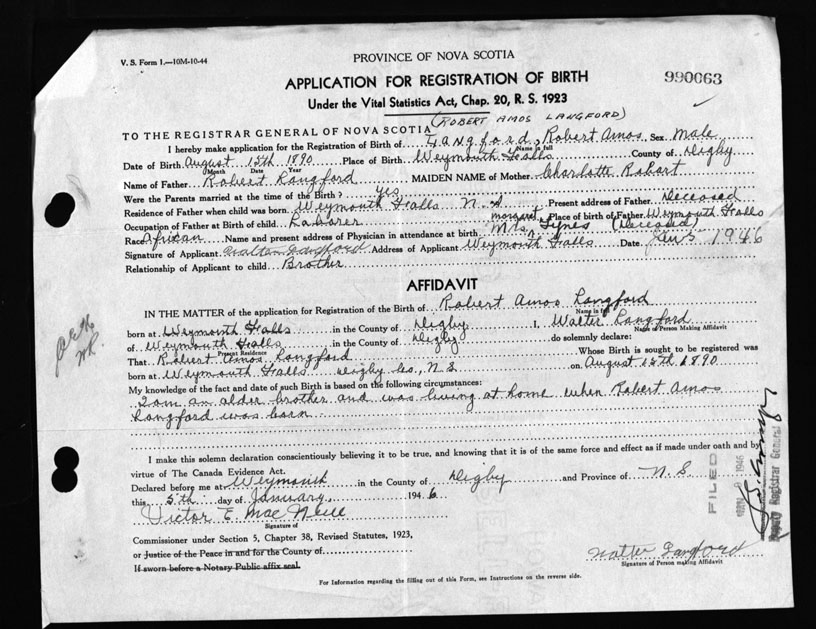 V. S. Form 1.—10M-10-44
PROVINCE OF NOVA SCOTIA
APPLICATION FOR REGISTRATION OF BIRTH
990063
Under the Vital Statistics Act, Chap. 20, R. S. 1923
(ROBERT AMOS LANGFORD)
TO THE REGISTRAR GENERAL OF NOVA SCOTIA
I hereby make application for the Registration of Birth of Langford, Robert Amos, Sex Male
Name in full
Date of Birth August 15th 1890 Place of Birth Weymouth Falls County of Digby
Month Date Year
Name of Father Robert Langford MAIDEN NAME of Mother Charlotte Robart
Were the Parents married at the time of the Birth? yes
Residence of Father when child was born Weymouth Falls N.S Present address of Father Deceased
Occupation of Father at Birth of child Labarer Place of birth of Father Weymouth Falls
Race African Name and present address of Physician in attendance at birth Mrs. Margaret Tynes (Deceased
Signature of Applicant Walter Langford Address of Applicant Weymouth Falls Date Jan 5 1946
Relationship of Applicant to child Brother
AFFIDAVIT
IN THE MATTER of the application for Registration of the Birth of Robert Amos Langford
Name in full
born at Weymouth Falls in the County of Digby I, Walter Langford
Name of Person Making Affidavit
of Weymouth Falls in the County of Digby do solemnly declare:
Present Residence
That Robert Amos Langford Whose Birth is sought to be registered was
born at Weymouth Falls Digby Co, N.S on August 15th 1890
My knowledge of the fact and date of such Birth is based on the following circumstances:
I am an older brother and was living at home when Robert Amos
Langford was born
I make this solemn declaration conscientiously believing it to be true, and knowing that it is of the same force and effect as if made under oath and by
virtue of The Canada Evidence Act.
Declared before me at Weymouth in the County of Digby and Province of N.S
this 5th day of January, 1946
Victor E MacNeill
Signature of
Commissioner under Section 5, Chapter 38, Revised Statutes, 1923,
or Justice of the Peace in and for the County of
If sworn before a Notary Public affix seal.
Walter Langford
Signature of Person making Affidavit
For Information regarding the filling out of this Form, see Instructions on the reverse side.
FILED
1946
Deputy Registrar General